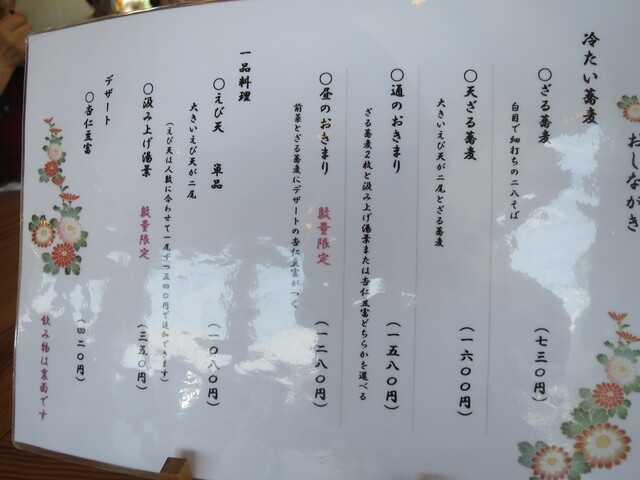 おしながき
冷たい蕎麦
〇ざる蕎麦 (七三〇円)
白目で細打ちの二八そば
〇天ざる蕎麦 (一六〇〇円)
大きいえび天が二尾とざる蕎麦
〇通のおきまり (一五八〇円)
ざる蕎麦2枚と汲み上げ湯葉または杏仁豆富どちらかを選べる
〇昼のおきまり 数量限定 (一二八〇円)
前菜とざる蕎麦にデザートの杏仁豆富がつく
一品料理
〇えび天 単品 (一〇八〇円)
大きいえび天が二尾
(えび天は人数に合わせて一尾ずつ五四〇円で追加できます)
〇汲み上げ湯葉 数量限定 (三五〇円)
デザート
〇杏仁豆富 (四二〇円)
飲み物は裏面です